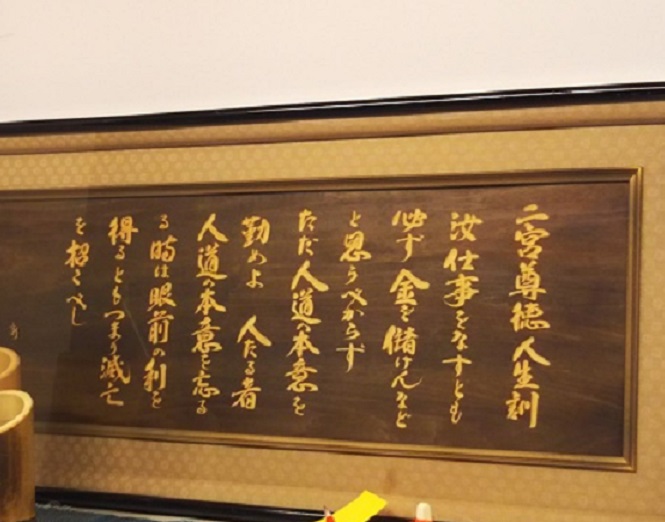 二宮尊徳 人生訓
汝仕事をなすとも
必ず金を儲けんなど
と思うべからず
ただ人道の本意を
勤めよ 人たる者
人道の本意を忘る
る時は眼前の利を
得るともつまり滅亡
を招くべし